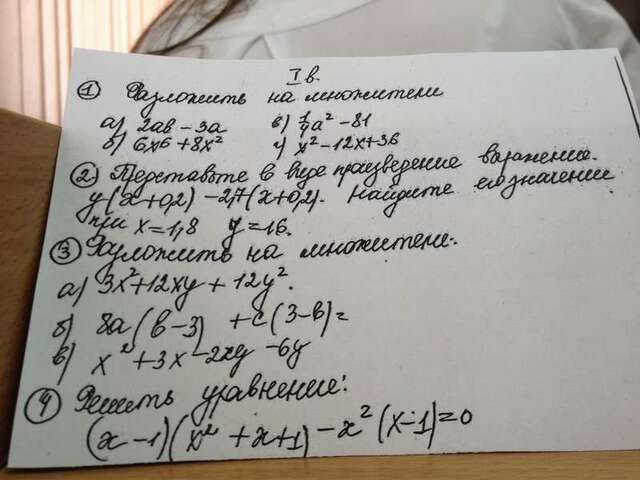 I в.
① Разложить на множители
а) 2ab - 3a в) 1/4a² - 81
б) 6x⁶ + 8x² г) x² - 12x + 36
② Представьте в виде произведение выражение.
y(x+0,2) - 2,7(x+0,2). Найдите его значение
при x=1,8 y=-16.
③ Разложить на множители:
а) 3x² + 12xy + 12y².
б) 8a(b-3) + c(3-b)=
в) x² + 3x - 2xy - 6y
④ Решить уравнение:
(x-1)(x² + x + 1) - x²(x-1)=0